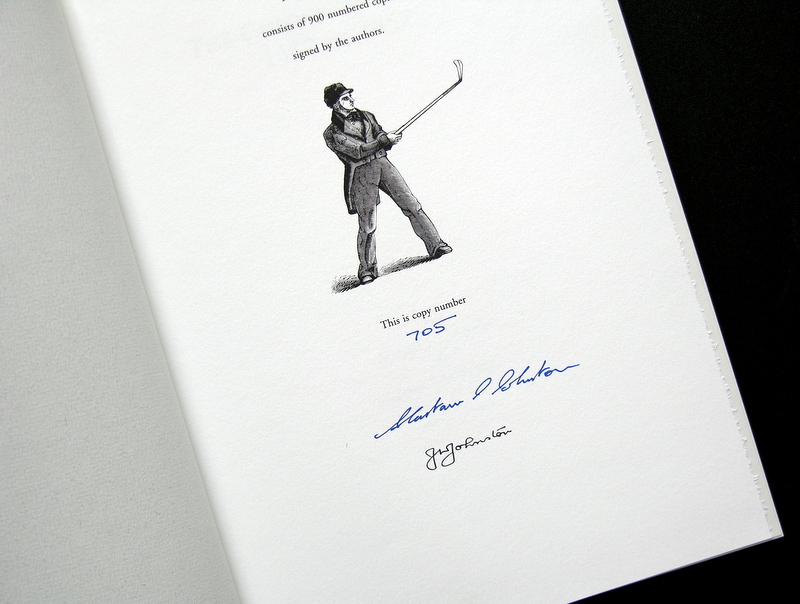 consists of 900 numbered cop
signed by the authors.
This is copy number
705
Alastair J Johnston
JFJohnston